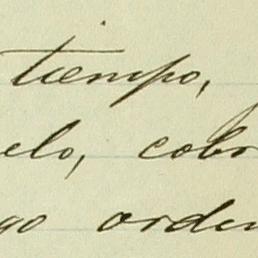 tiempo,
elo, cobr
go orden